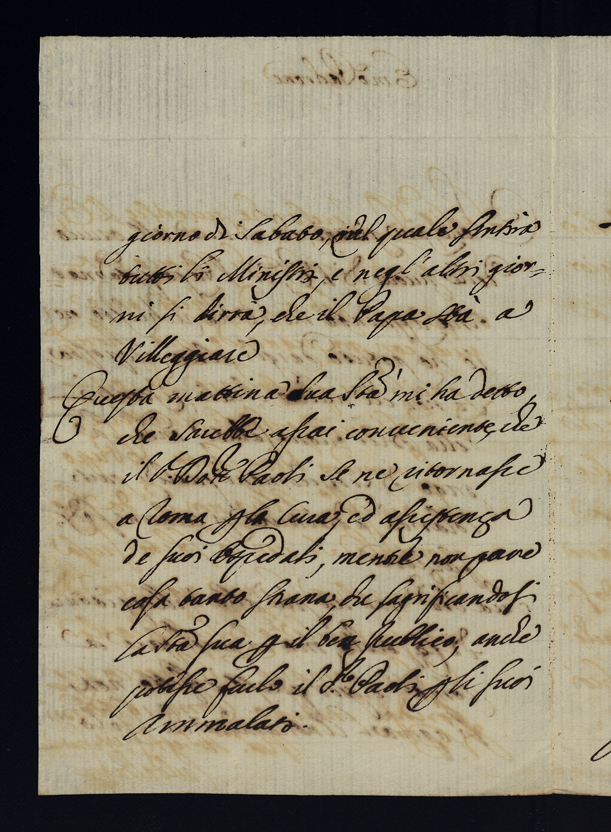 giorno di Sabato, nel quale sentirà
tutti li Ministri, e negl'altri gior=
ni si dirrà, che il Papa stà a
Villeggiare
Questa mattina Sua Stà mi ha detto,
che sarebbe assai conveniente, che
il Sr. Dott.e Paoli se ne ritornasse
a Roma p la cura, ed assistenza
de suoi Ospedali, mentre non pare
cosa tanto strana, che sagrificandosi
la Stà sua p il ben publico, anche
potesse farlo il Sr. Paoli p li suoi
Ammalati.